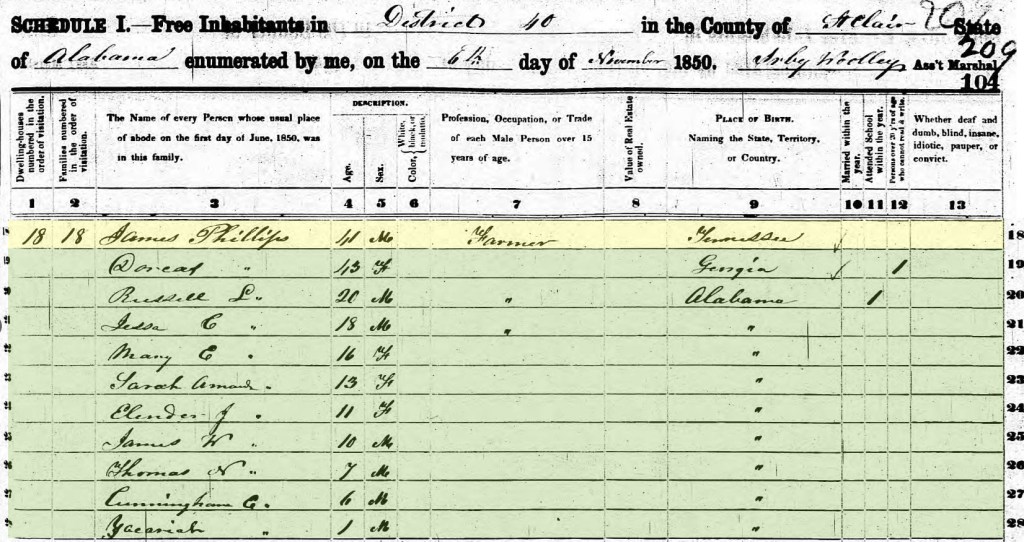 SCHEDULE I.—Free Inhabitants in District 40 in the County of St Clair State
of Alabama enumerated by me, on the 6th day of November 1850. Ass't Marshal
209
104
Dwelling-houses numbered in the order of visitation.
Families numbered in the order of visitation.
The Name of every Person whose usual place of abode on the first day of June, 1850, was in this family.
DESCRIPTION.
Age.
Sex.
Color, White, black, or mulatto.
Profession, Occupation, or Trade of each Male Person over 15 years of age.
Value of Real Estate owned.
PLACE OF BIRTH. Naming the State, Territory, or Country.
Married within the year.
Attended School within the year.
Persons over 20 y'rs of age who cannot read & write.
Whether deaf and dumb, blind, insane, idiotic, pauper, or convict.
1 2 3 4 5 6 7 8 9 10 11 12 13
18 18 18 James Phillips 41 M Farmer Tennessee 18
19 Dorcas " 43 F Georgia 1 19
20 Russell L " 20 M " Alabama 1 20
21 Jessa C " 18 M " " 21
22 Mary E " 16 F " 22
23 Sarah Amand " 13 F " 23
24 Elender J " 11 F " 24
25 James W " 10 M " 25
26 Thomas N " 7 M " 26
27 Cunningham C " 6 M " 27
28 Yacariah " 1 M " 28